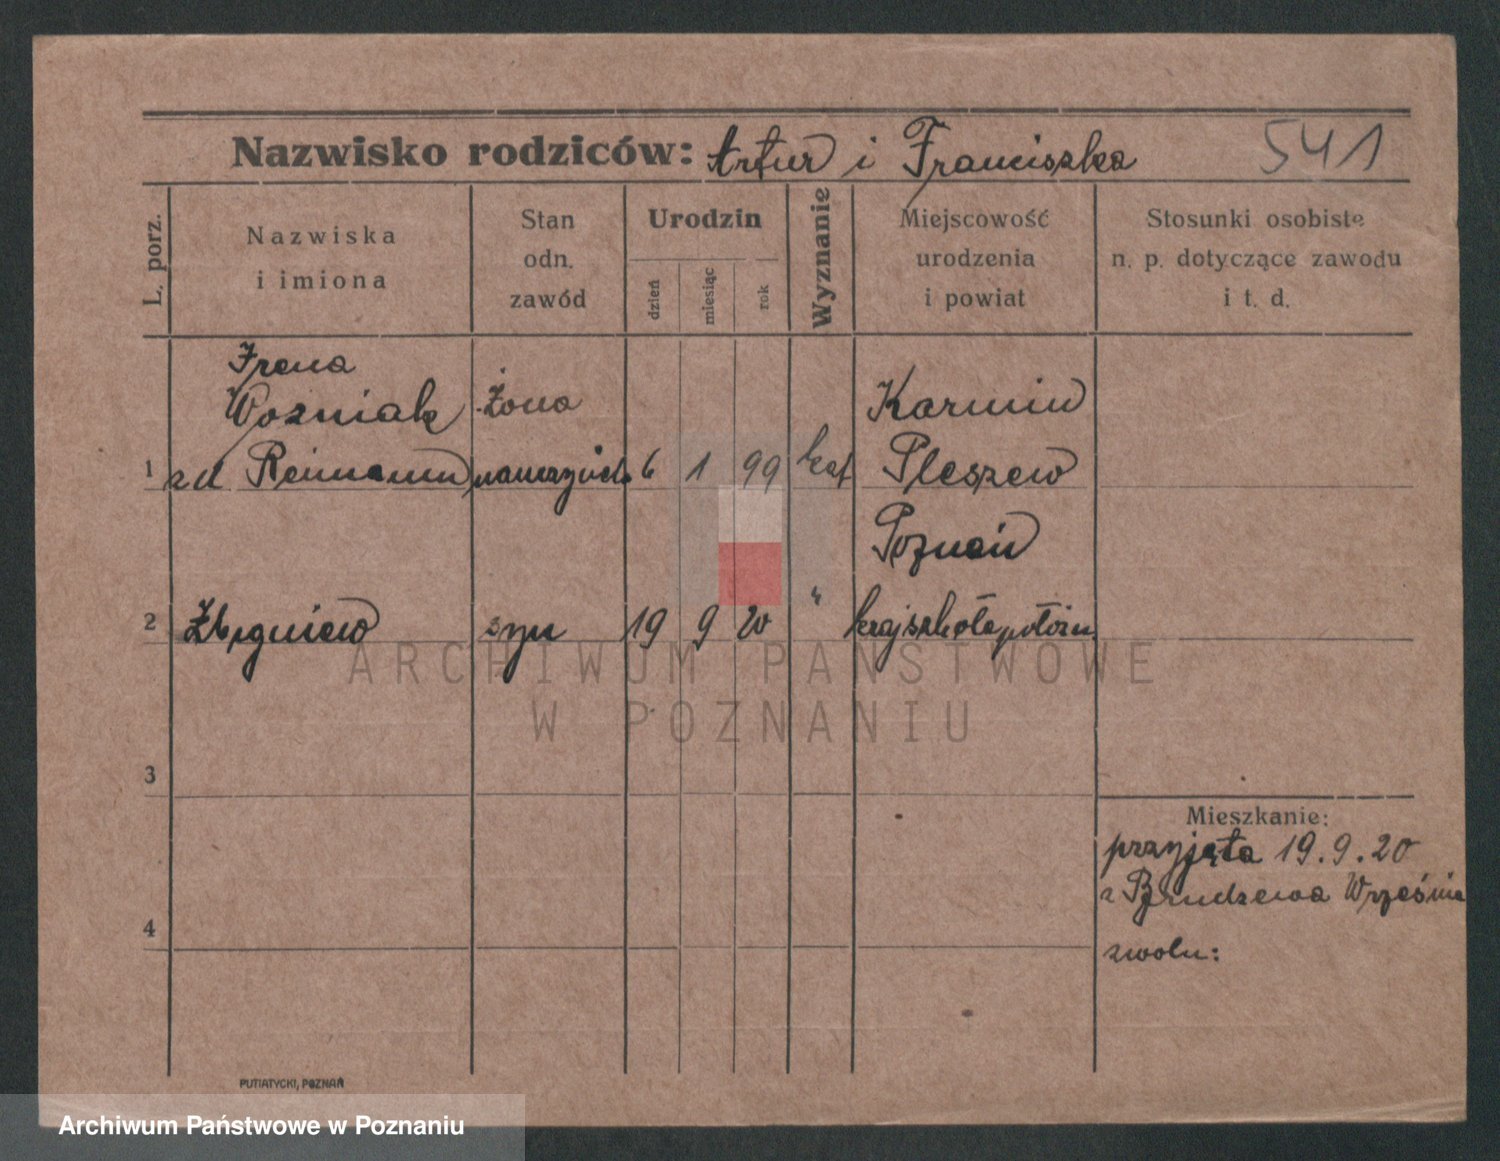 Nazwisko rodziców: Artur i Franciszka 541
L. porz.
Nazwiska
i imiona
Stan
odn.
zawód
Urodzin
dzień
miesiąc
rok
Wyznanie
Miejscowość
urodzenia
i powiat
Stosunki osobiste
n. p. dotyczące zawodu
i t. d.
Irena
Wozniak
zd Reimann
żona
nauczyciela
1
6 1 99 kat
Karmin
Pleszew
2 Zbigniew syn 19 9 20 "
Poznań
kraj szkoła położn
3
4
Mieszkanie:
przyjęta 19.9.20
z Brudzewa Września
zwoln:
PUTIATYCKI, POZNAŃ
ARCHIWUM PAŃSTWOWE
W POZNANIU
Archiwum Państwowe w Poznaniu